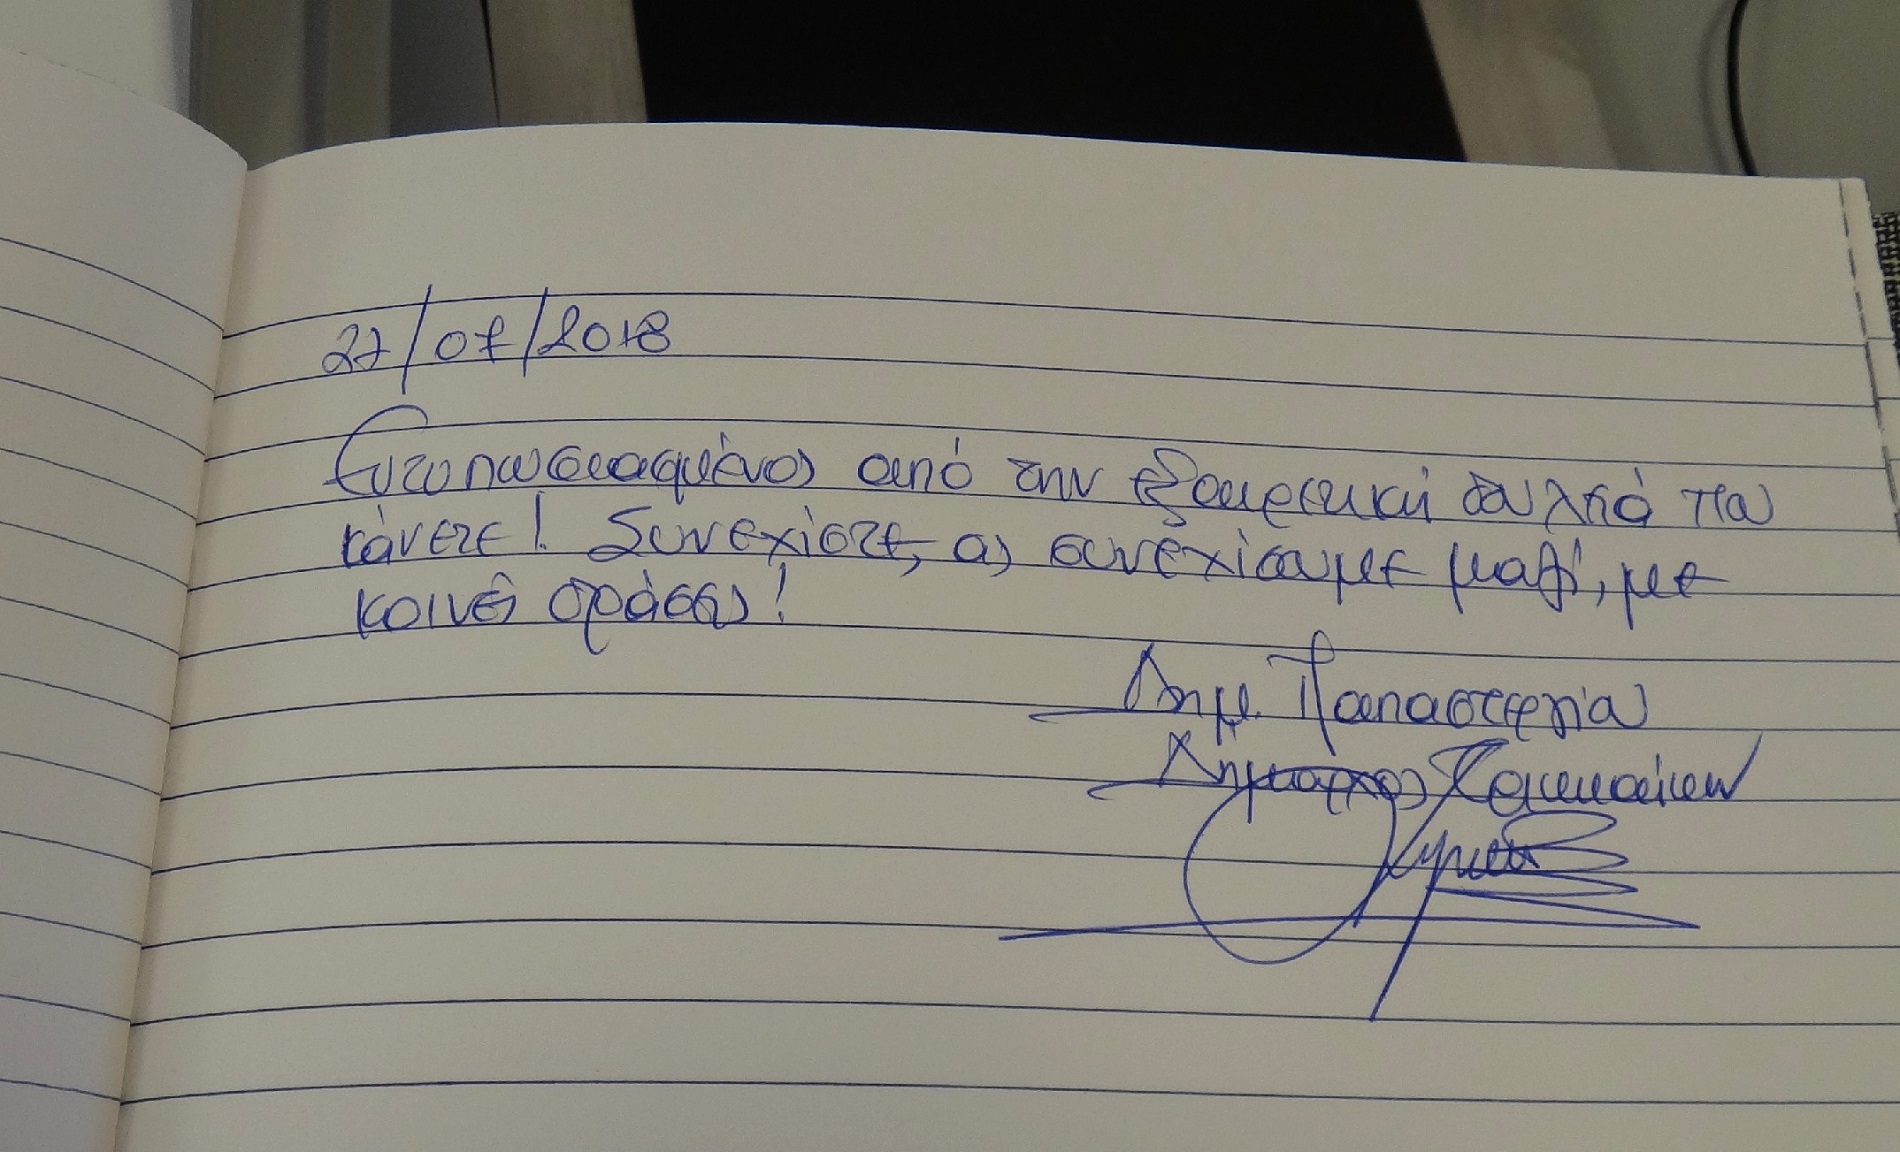 27/07/2018
Εντυπωσιασμένος από την εξαιρετική δουλειά που
κάνετε! Συνεχίστε, ας συνεχίσουμε μαζί, με
κοινές δράσεις!
Δημ. Παπαστεργίου
Δήμαρχος Τρικκαίων